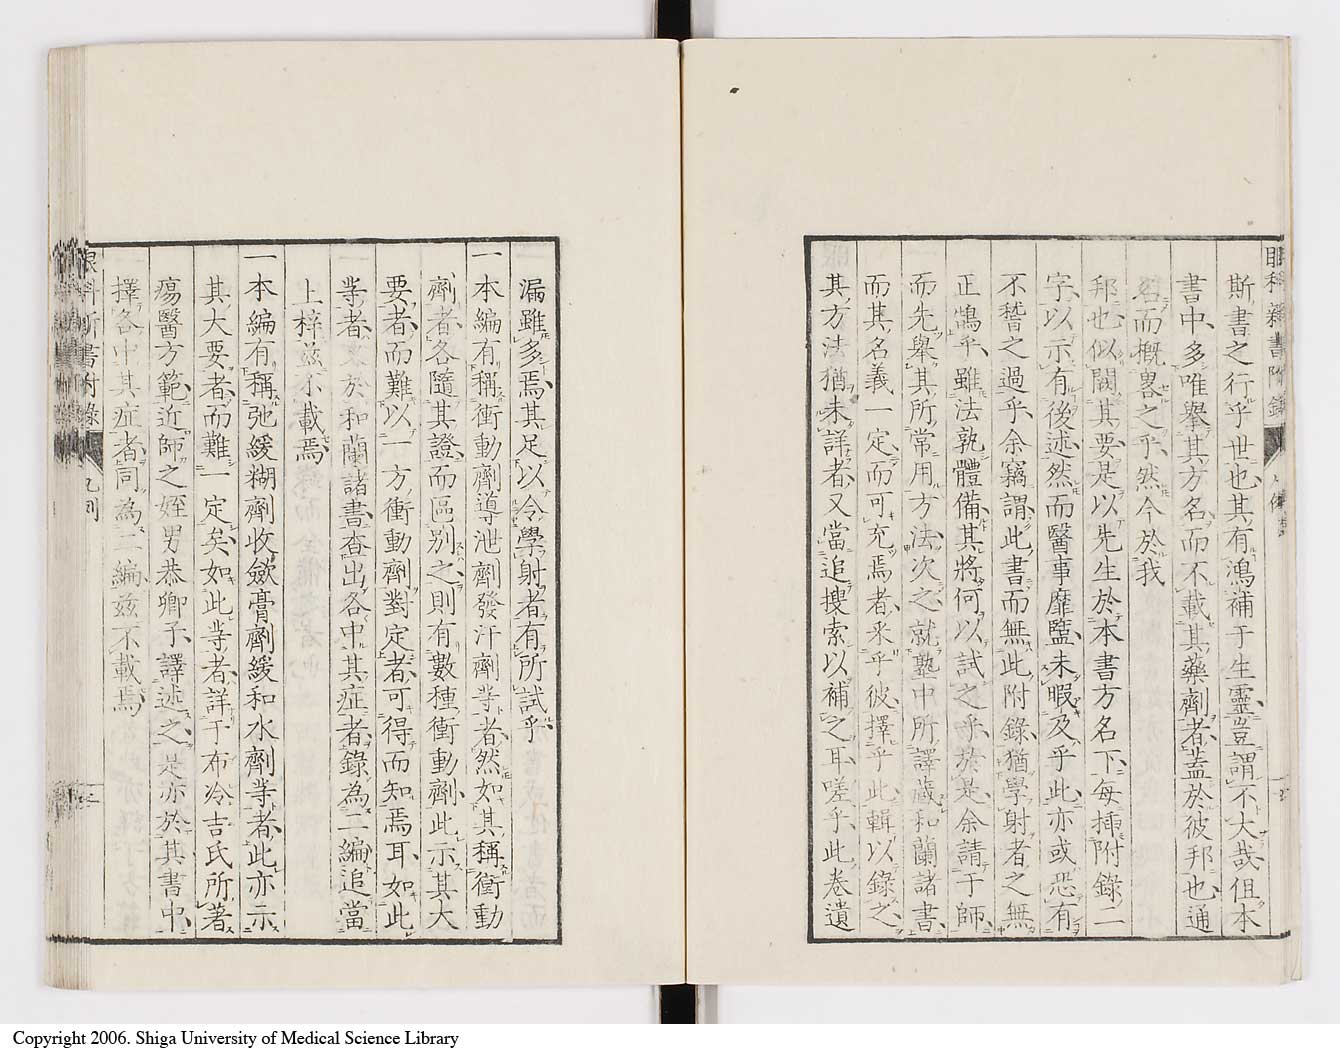 眼科新書附錄
斯書之行乎世也其有鴻補于生靈豈謂不大哉但本
書中多唯擧其方名而不載其藥劑者蓋於彼邦也通
名而概畧之乎然今於我
邦也似闕其要是以先生於本書方名下每插附錄二
字以示有後述然而醫事靡盬未暇及乎此亦或恐有
不稽之過乎余竊謂此書而無此附錄猶學射者之無
正鵠乎雖法孰體備其將何以試之乎於是余請于師
而先擧其所常用方法次之就塾中所譯藏和蘭諸書
而其名義一定而可充焉者采乎彼擇乎此輯以錄之
其方法猶未詳者又當追搜索以補之耳嗟乎此卷遺
漏雖多焉其足以令學射者有所試乎
一本編有稱衝動劑導泄劑發汗劑等者然如其稱衝動
劑者各隨其證而區別之則有數種衝動劑此示其大
要者而難以一方衝動劑對定者可得而知焉耳如此
等者於和蘭諸書查出各中其症者錄為二編追當
上梓茲不載焉
一本編有稱弛緩糊劑收斂膏劑緩和水劑等者此亦示
其大要者而難一定矣如此等者詳于布冷吉氏所著
瘍醫方範近師之姪男恭卿子譯述之是亦於其書中
擇各中其症者同為二編茲不載焉
眼科新書附錄
凡例
Copyright 2006. Shiga University of Medical Science Library